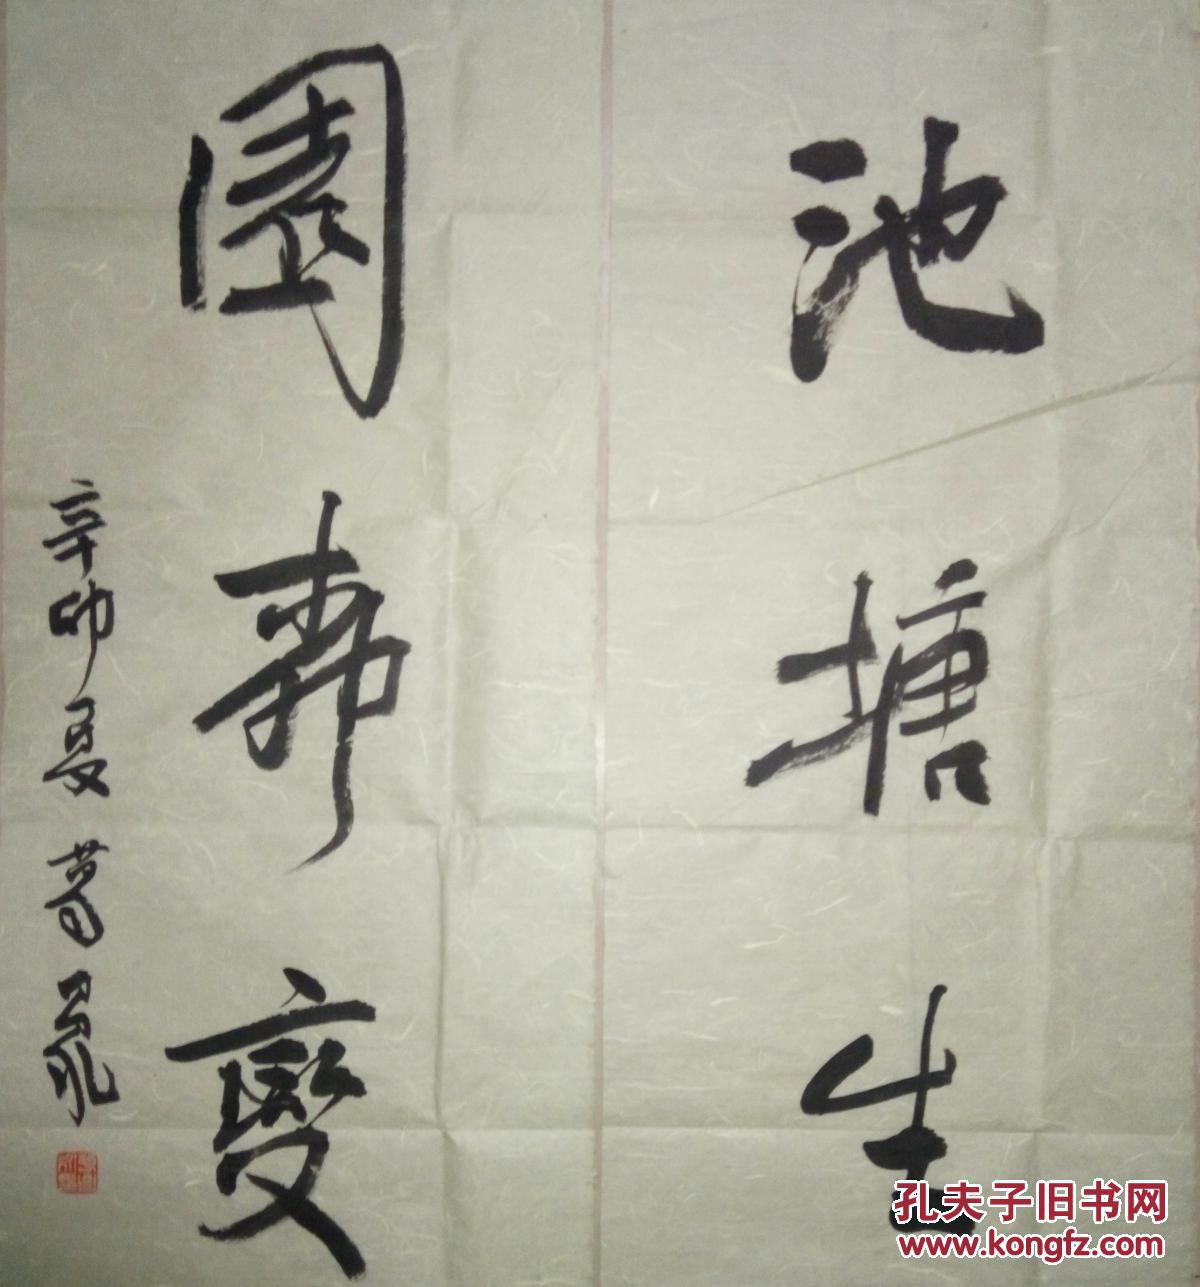 池塘生
園變
辛卯夏葛
孔夫子旧书网
www.kongfz.com